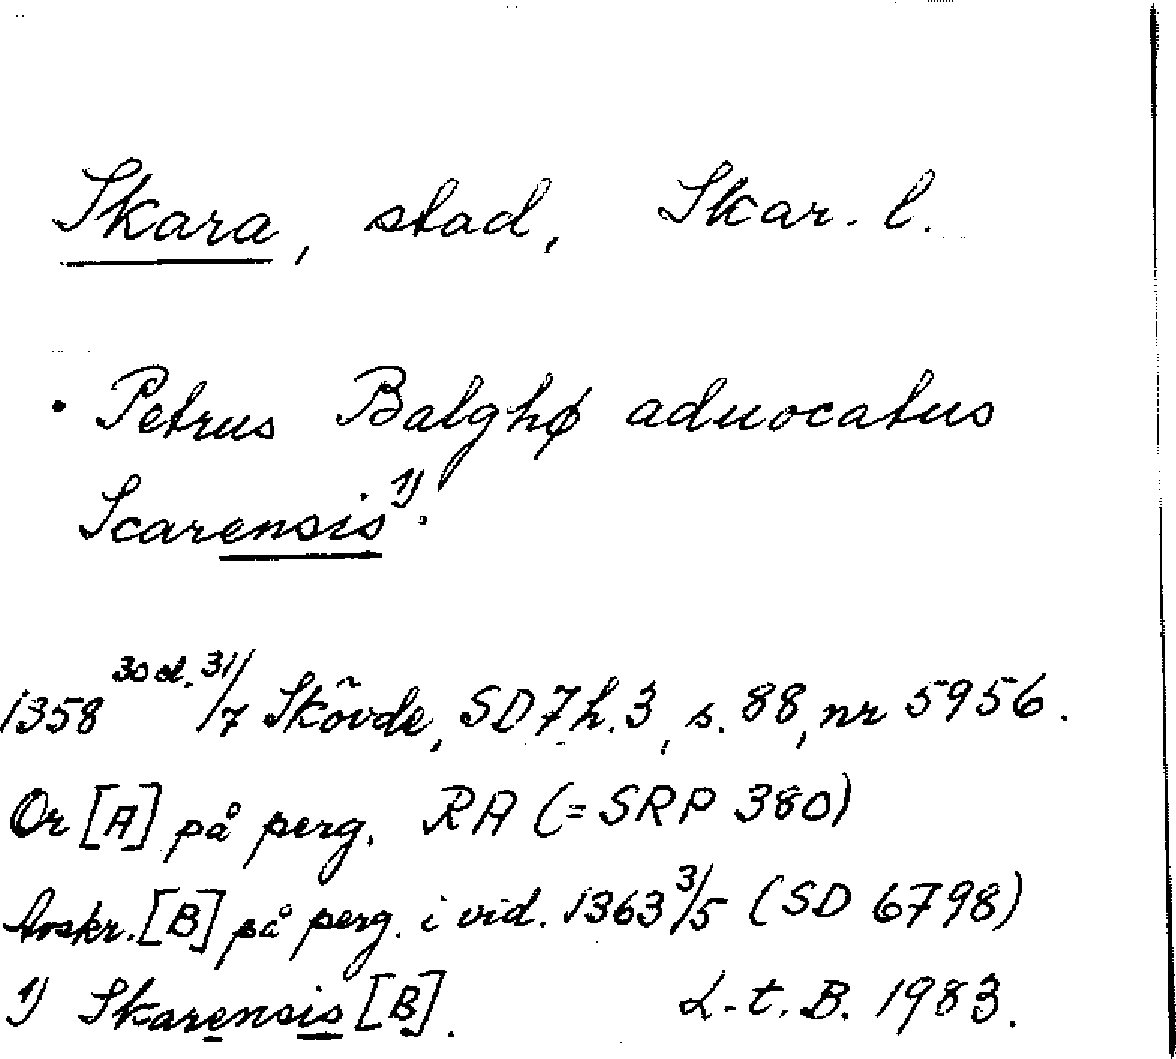 Skara, stad, Skar. l.
• Petrus Balghø aduocatus
Scarensis¹⁾.
1358 30 el. 31/7 Skövde, SD 7 h. 3, s. 88, nr 5956.
Or [A] på perg. RA (= SRP 380)
Avskr. [B] på perg. i vid. 1363 3/5 (SD 6798)
1) Skarensis [B]. L.t.B. 1983.